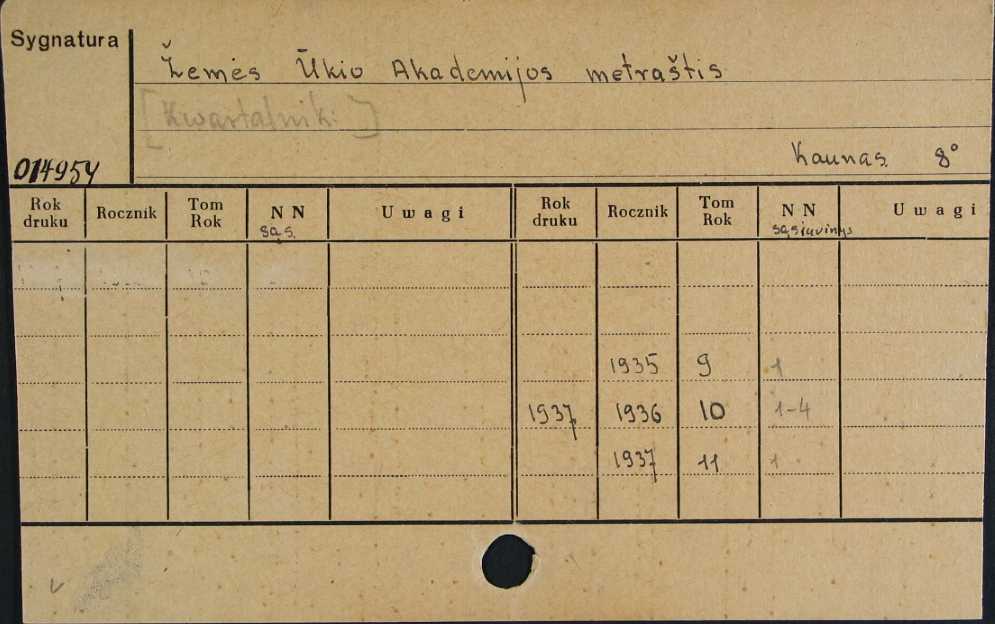 Sygnatura
Žemės Ūkio Akademijos metraštis
[Kwartalnik:]
Kaunas 8°
014954
Rok druku Rocznik Tom Rok NN Uwagi Rok druku Rocznik Tom Rok NN Uwagi
sąs. sąsiuvinys
1935 9 1
1937 1936 10 1-4
1937 11 1